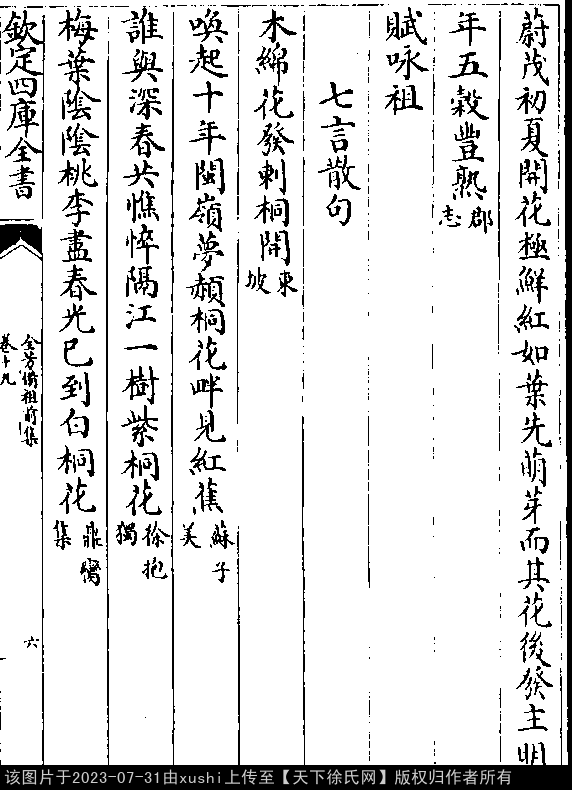 蔚茂初夏開花極鮮紅如葉先萌芽而其花後發主明
年五穀豐熟郡志
賦咏祖
七言散句
木綿花發刺桐開東坡
喚起十年閩嶺夢頳桐花畔見紅蕉蘇子美
誰與深春共憔悴隔江一樹紫桐花徐抱獨
梅葉陰陰桃李盡春光已到白桐花鼎臠集
欽定四庫全書
全芳備祖前集
卷十九
六
该图片于2023-07-31由xushi上传至【天下徐氏网】版权归作者所有